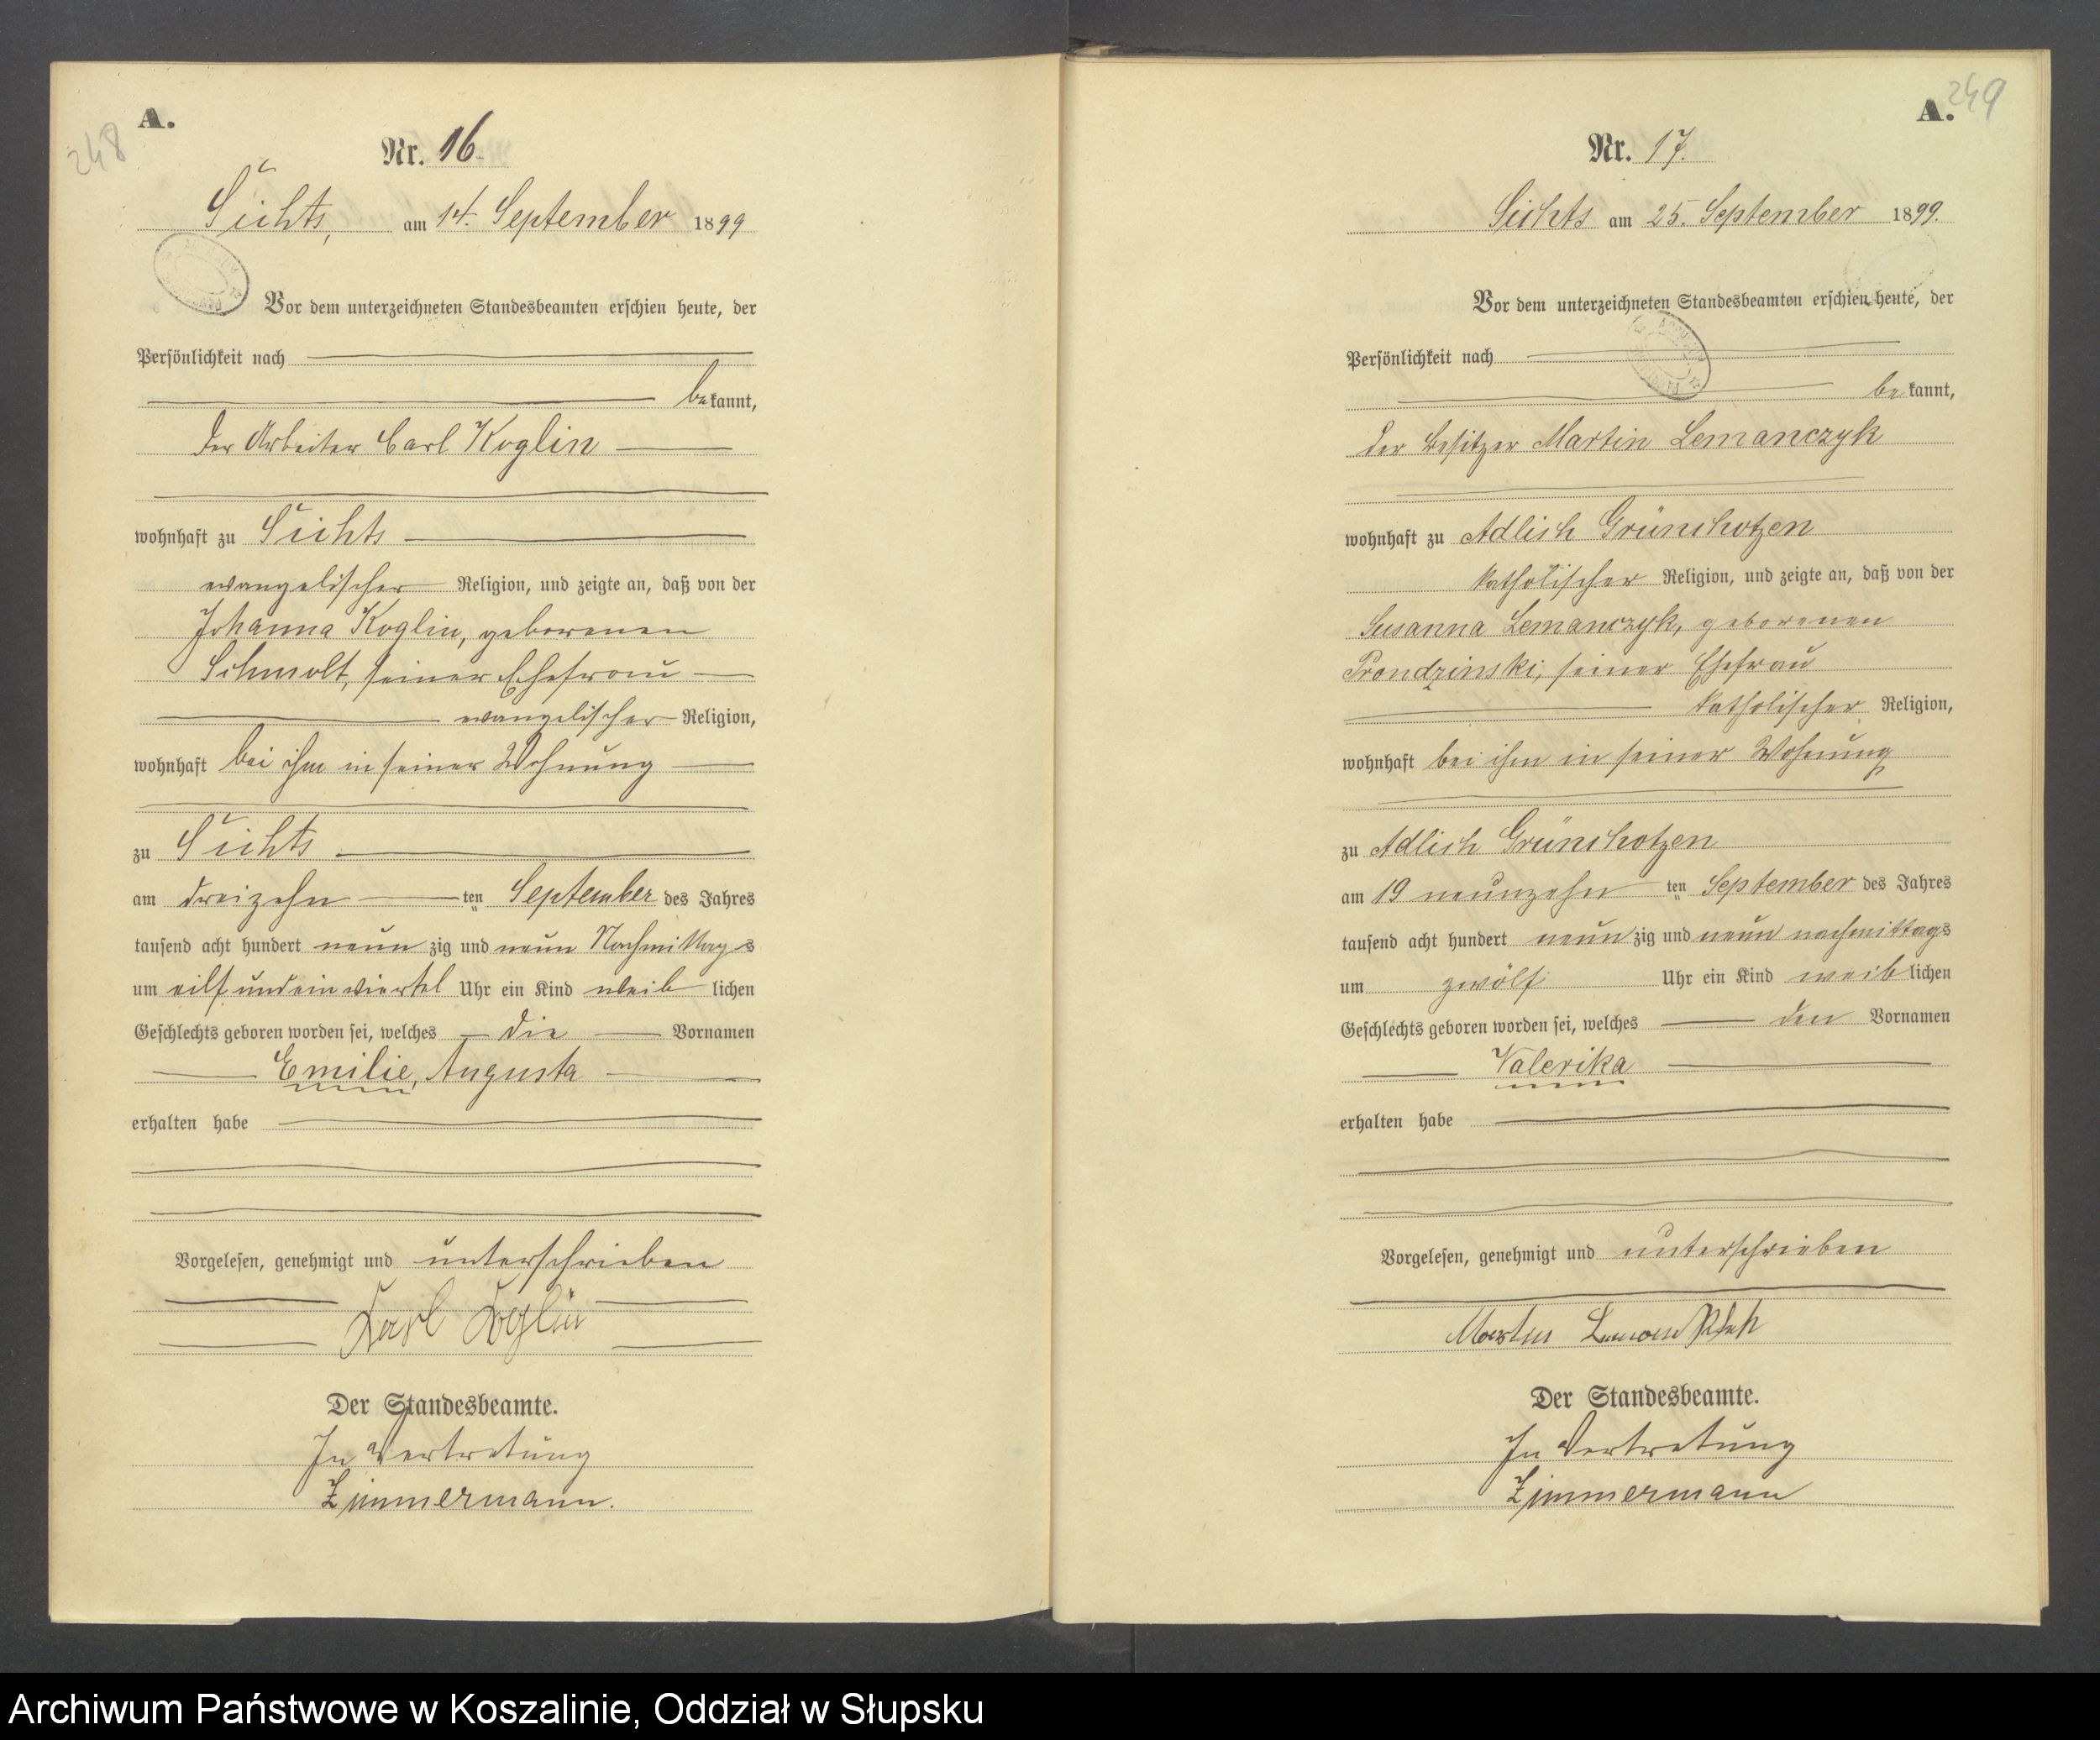 248
A.
Nr. 16
Sichts, am 14. September 1899
Vor dem unterzeichneten Standesbeamten erschien heute, der
Persönlichkeit nach
bekannt,
der Arbeiter Carl Koglin
wohnhaft zu Sichts
evangelischer Religion, und zeigte an, daß von der
Johanna Koglin, geborenen
Schmolt, seiner Ehefrau
evangelischer Religion,
wohnhaft bei ihm in seiner Wohnung
zu Sichts
am dreizehn ten September des Jahres
tausend acht hundert neun zig und neun Nachmittags
um eilf und ein viertel Uhr ein Kind weib lichen
Geschlechts geboren worden sei, welches die Vornamen
Emilie, Augusta
erhalten habe
Vorgelesen, genehmigt und unterschrieben
Karl Koglin
Der Standesbeamte.
In Vertretung
Zimmermann.
249
A.
Nr. 17.
Sichts am 25. September 1899.
Vor dem unterzeichneten Standesbeamten erschien heute, der
Persönlichkeit nach
bekannt,
der Besitzer Martin Lemanczyk
wohnhaft zu Adlich Grünchotzen
katholischer Religion, und zeigte an, daß von der
Susanna Lemanczyk, geborenen
Prondzinski, seiner Ehefrau
katholischer Religion,
wohnhaft bei ihm in seiner Wohnung
zu Adlich Grünchotzen
am 19 neunzehn ten September des Jahres
tausend acht hundert neun zig und neun nachmittags
um zwölf Uhr ein Kind weib lichen
Geschlechts geboren worden sei, welches den Vornamen
Valerika
erhalten habe
Vorgelesen, genehmigt und unterschrieben
Der Standesbeamte.
In Vertretung
Zimmermann
Archiwum Państwowe w Koszalinie, Oddział w Słupsku